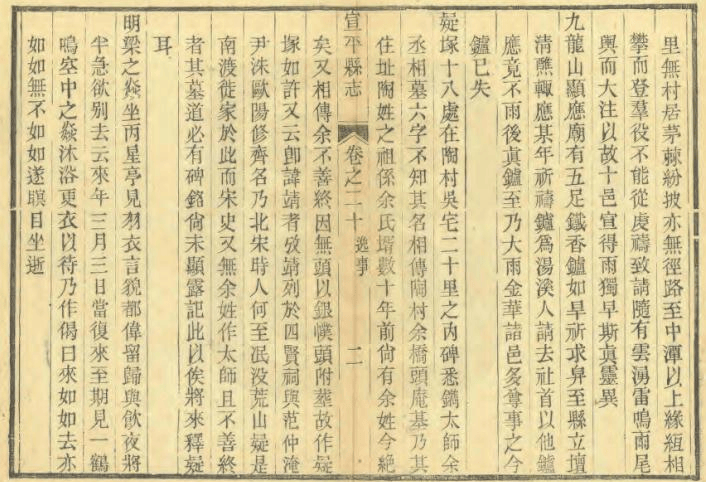 里無村居茅棘紛披亦無徑路至中潭以上緣絙相
攀而登羣役不能從虔禱致請隨有雲湧雷鳴雨尾
輿而大注以故十邑宣得雨獨早斯真靈異
九龍山顯應廟有五足鐵香鑪如旱祈求舁至縣立壇
清醮輒應某年祈禱鑪為湯溪人請去社首以他鑪
應竟不雨後真鑪至乃大雨金華諸邑多尊事之今
鑪已失
疑塚十八處在陶村吳宅二十里之內碑悉鐫太師余
丞相墓六字不知其名相傳陶村余橋頭庵基乃其
住址陶姓之祖係余氏壻數十年前尚有余姓今絶
宣平縣志 卷之二十 逸事 二
矣又相傳余不善終因無頭以銀幞頭附葬故作疑
塚如許又云卽諱靖者攷靖列於四賢祠與范仲淹
尹洙歐陽修齊名乃北宋時人何至泯没荒山疑是
南渡徙家於此而宋史又無余姓作太師且不善終
者其墓道必有碑銘尚未顯露記此以俟將來釋疑
耳
明梁之焱坐丙星亭見羽衣言貌都偉留歸與飲夜將
半急欲别去云來年三月三日當復來至期見一鶴
鳴空中之焱沐浴更衣以待乃作偈曰來如如去亦
如如無不如如遂瞑目坐逝